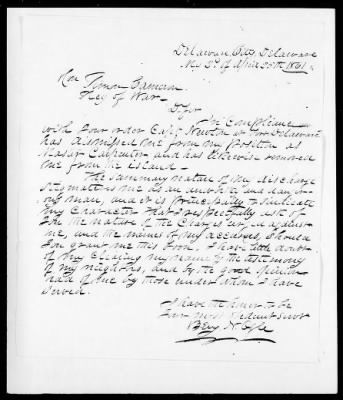 Delaware City Delaware
April 25th 1861
Hon Simon Cameron
Secy of War
Dr Sir
In Compliance
with your order Capt Newton at Fort Delaware
has dismissed me from my position as
Master Carpenter and has likewise removed
me from the island -
The summary nature of my discharge
stigmatises me as an unworthy and danger-
ous man, and it is principally to vindicate
my Character that I respectfully ask of
you the nature of the Charges urged against
me, and the names of my accusers, should
you grant me this boon. I have little doubt
of my clearing my name by the testimony
of my neighbors, and by the good opinion
held of me by those under whom I have
served.
I have the honor to be
Your most obedient servt
Benj H